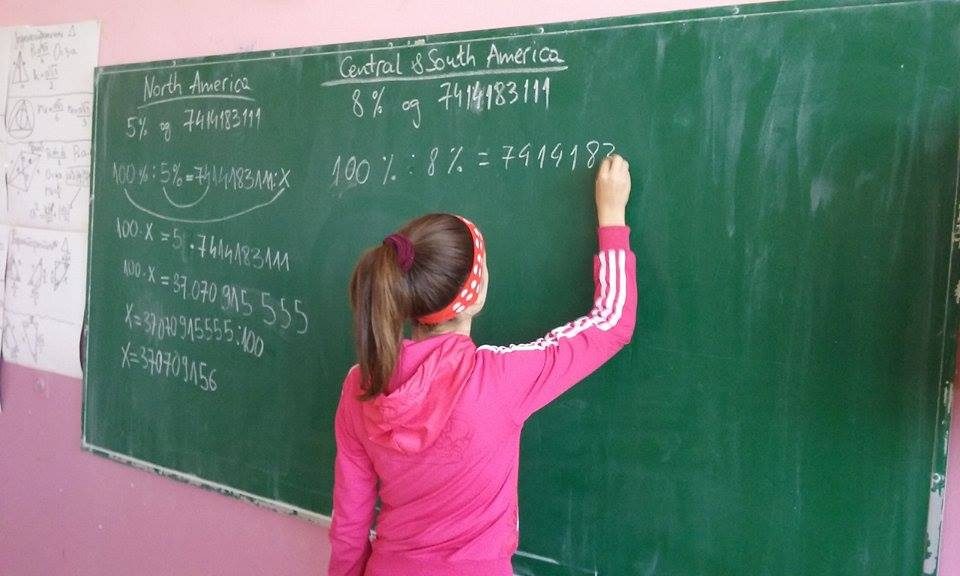 North America
5% og 7414183111
100% : 5% = 7414183111 : X
100 · X = 5 · 7414183111
100 · X = 37.070 915 555
X = 37070915555 : 100
X = 370709156
Central & South America
8% og 7414183111
100% : 8% = 7414183